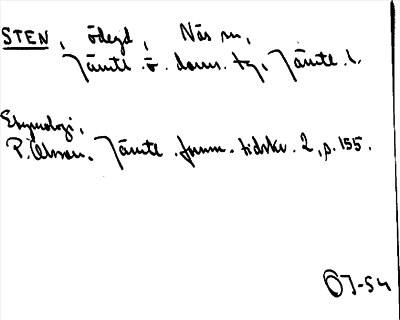 STEN, ödegd, Näs sn,
Jämtl. ö. doms. tg, Jämtl. l.
Etymologi,
P. Olsson. Jämtl. fornm. tidskr. 2, s. 155.
OJ-54